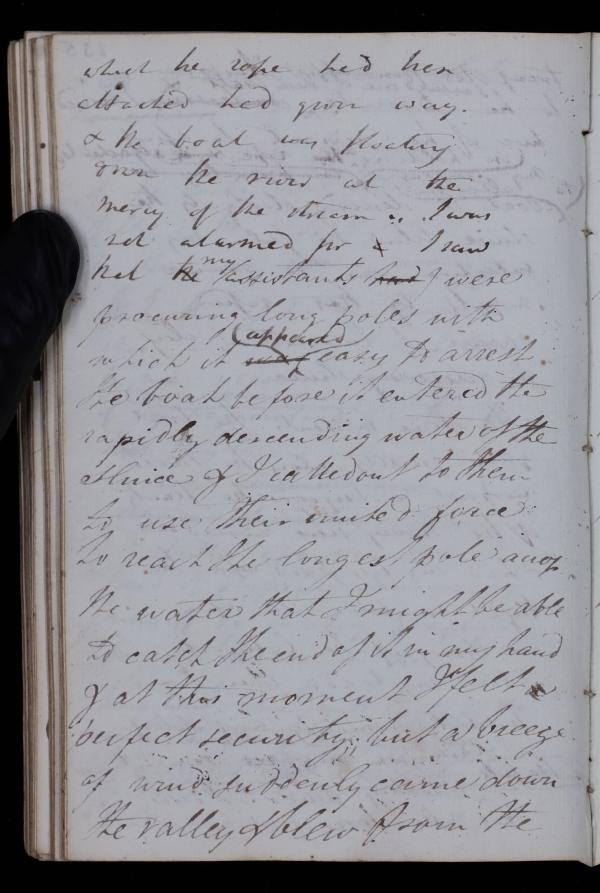 which the rope had been
attached had given way.
& the boat was floating
down the river at the
mercy of the stream. I was
not alarmed for I saw
that the my assistants had were
procuring long poles with
which it was appeared easy to arrest
the boat before it entered the
rapidly descending water of the
sluice & I called out to them
to use their united force
to reach the longest pole across
the water that I might be able
to catch the end of it in my hand
& at this moment I felt a
perfect security; but a breeze
of wind suddenly came down
the valley & blew from the